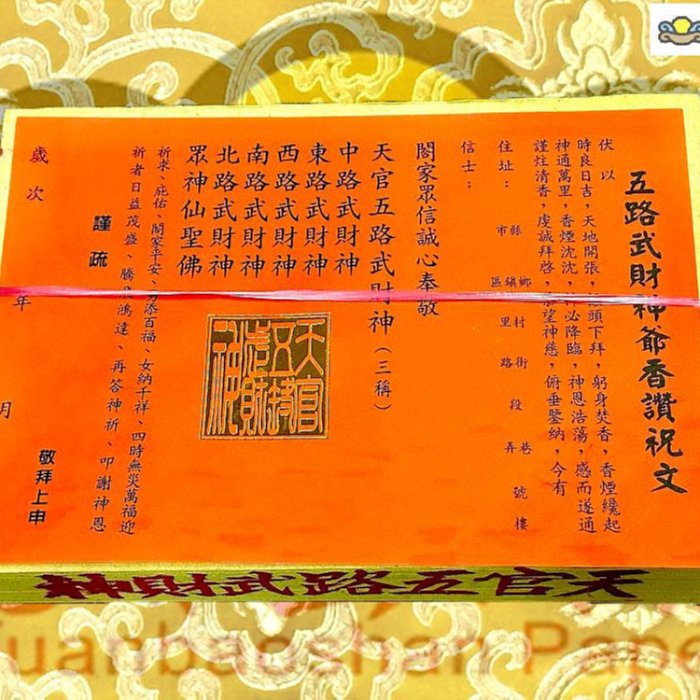 五路武財神爺香讚祝文
伏以
時良日吉，天地開張，頭下拜，躬身焚香，香煙纔起
神通萬里，香煙沈沈，必降臨，神恩浩蕩，感而遂通
謹炷清香，虔誠拜啓，望神慈，俯垂鑒納，今有
住址：
縣市
鄉鎮區
村里
街路
段
巷弄
號
樓
信士：
閤家眾信誠心奉敬
天官五路武財神（三稱）
中路武財神
東路武財神
西路武財神
南路武財神
北路武財神
眾神仙聖佛
祈求、庇佑、閤家平安、男添百福、女納千祥、四時無災萬福迎
祈者日益茂盛、騰飛鴻達、再答神祈、叩謝神恩
謹疏
敬拜上申
歲次
年
月
天官五路武財神
天官五路武財神